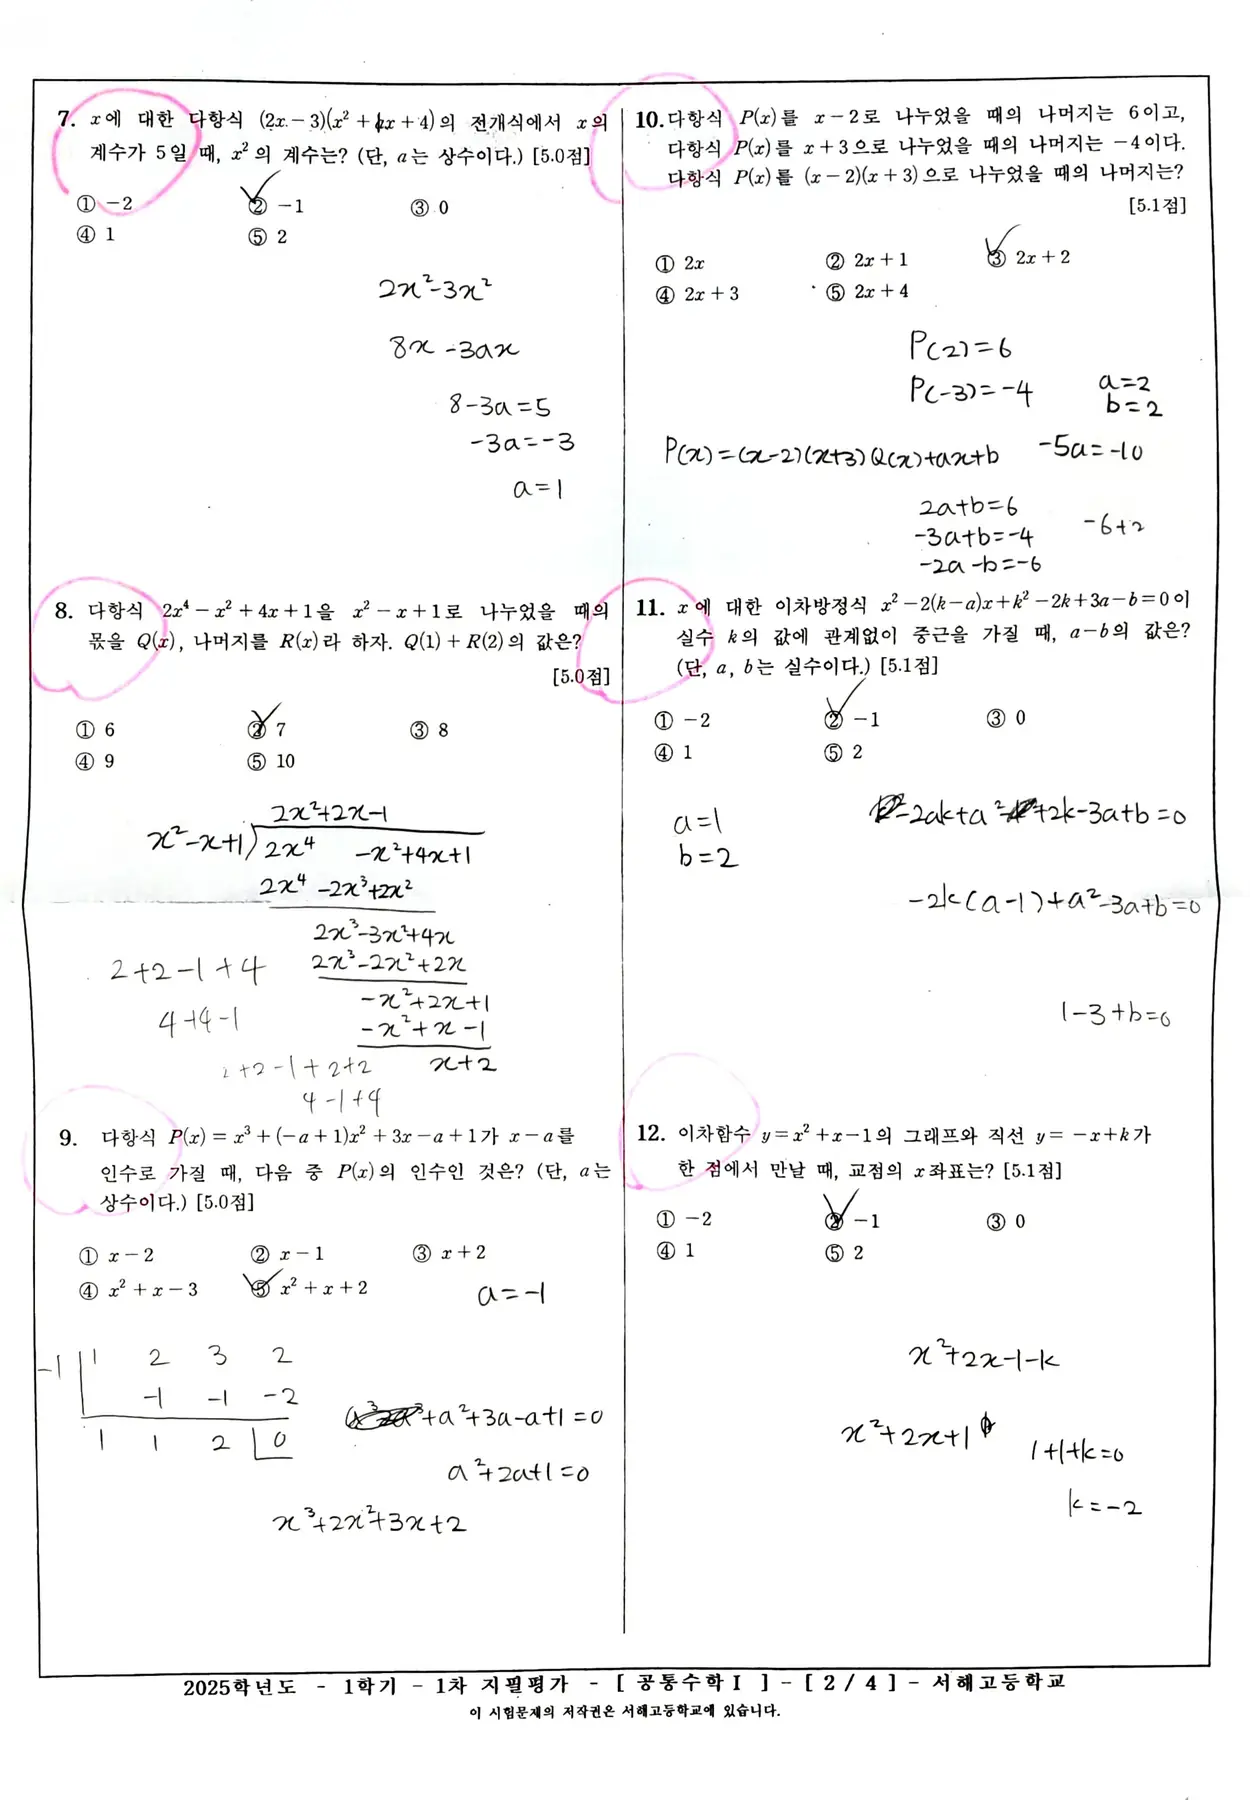 7. x에 대한 다항식 (2x-3)(x²+ax+4)의 전개식에서 x의
계수가 5일 때, x²의 계수는? (단, a는 상수이다.) [5.0점]
① -2 ② -1 ③ 0
④ 1 ⑤ 2
2x²-3x²
8x -3ax
8-3a=5
-3a=-3
a=1
8. 다항식 2x⁴-x²+4x+1을 x²-x+1로 나누었을 때의
몫을 Q(x), 나머지를 R(x)라 하자. Q(1)+R(2)의 값은?
[5.0점]
① 6 ② 7 ③ 8
④ 9 ⑤ 10
2x²+2x-1
x²-x+1) 2x⁴ -x²+4x+1
2x⁴ -2x³+2x²
2x³-3x²+4x
2x³-2x²+2x
-x²+2x+1
-x²+x-1
x+2
2+2-1+4
4+4-1
2+2-1+2+2
4-1+4
9. 다항식 P(x)=x³+(-a+1)x²+3x-a+1가 x-a를
인수로 가질 때, 다음 중 P(x)의 인수인 것은? (단, a는
상수이다.) [5.0점]
① x-2 ② x-1 ③ x+2
④ x²+x-3 ⑤ x²+x+2
a=-1
-1 1 2 3 2
-1 -1 -2
1 1 2 0
+a²+3a-a+1=0
a²+2a+1=0
x³+2x²+3x+2
10. 다항식 P(x)를 x-2로 나누었을 때의 나머지는 6이고,
다항식 P(x)를 x+3으로 나누었을 때의 나머지는 -4이다.
다항식 P(x)를 (x-2)(x+3)으로 나누었을 때의 나머지는?
[5.1점]
① 2x ② 2x+1 ③ 2x+2
④ 2x+3 ⑤ 2x+4
P(2)=6
P(-3)=-4
a=2
b=2
P(x)=(x-2)(x+3)Q(x)+ax+b
-5a=-10
2a+b=6
-3a+b=-4
-2a-b=-6
-6+2
11. x에 대한 이차방정식 x²-2(k-a)x+k²-2k+3a-b=0이
실수 k의 값에 관계없이 중근을 가질 때, a-b의 값은?
(단, a, b는 실수이다.) [5.1점]
① -2 ② -1 ③ 0
④ 1 ⑤ 2
a=1
b=2
-2ak+a² +2k-3a+b=0
-2k(a-1)+a²-3a+b=0
1-3+b=0
12. 이차함수 y=x²+x-1의 그래프와 직선 y=-x+k가
한 점에서 만날 때, 교점의 x좌표는? [5.1점]
① -2 ② -1 ③ 0
④ 1 ⑤ 2
x²+2x-1-k
x²+2x+1
1+1+k=0
k=-2
2025학년도 - 1학기 - 1차 지필평가 - [ 공통수학Ⅰ ] - [ 2 / 4 ] - 서해고등학교
이 시험문제의 저작권은 서해고등학교에 있습니다.